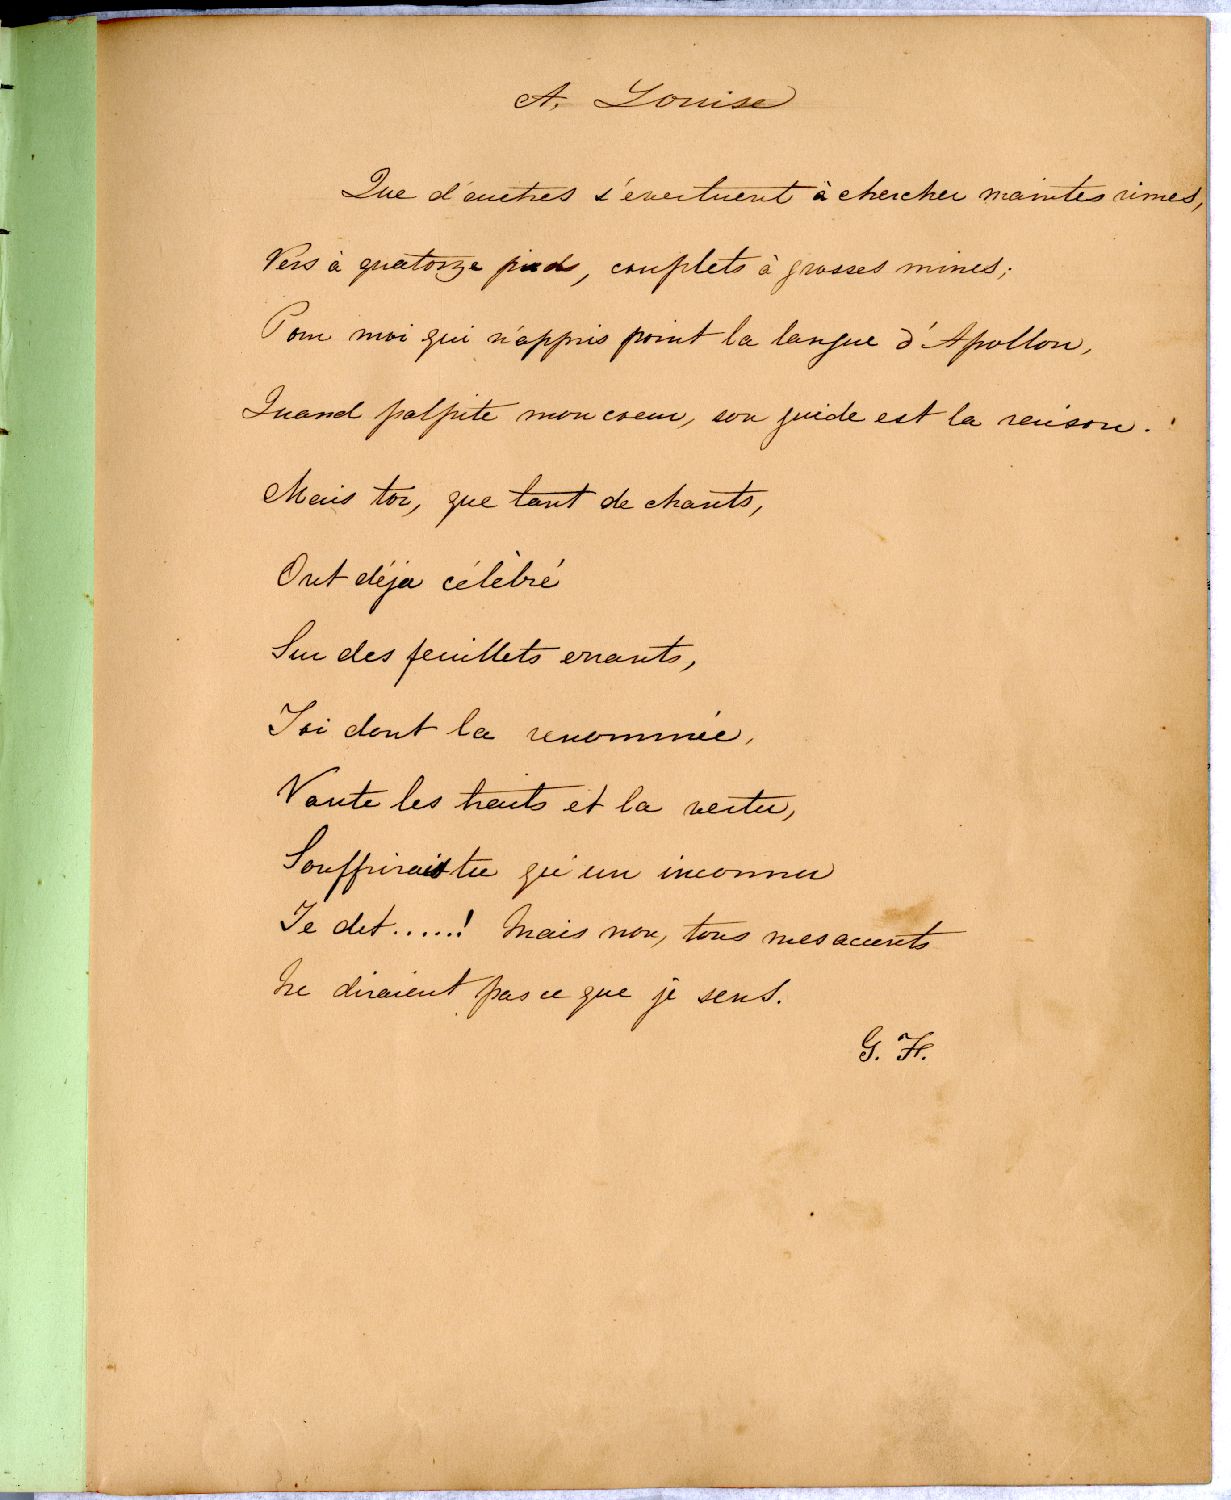 A. Louise
Que d'autres s'evertuent à chercher maintes rimes,
Vers à quatorze pieds, couplets à grosses mines;
Pour moi qui n'appris point la langue d'Apollon,
Quand palpite mon coeur, son guide est la raison.
Mais toi, que tant de chants,
Ont déja célèbré
Sur des feuillets errants,
Toi dont la renommée,
Vante les traits et la vertu,
Souffrirais tu qu'un inconnu
Te dit......! Mais non, tous mes accents
Ne diraient pas ce que je sens.
G. H.